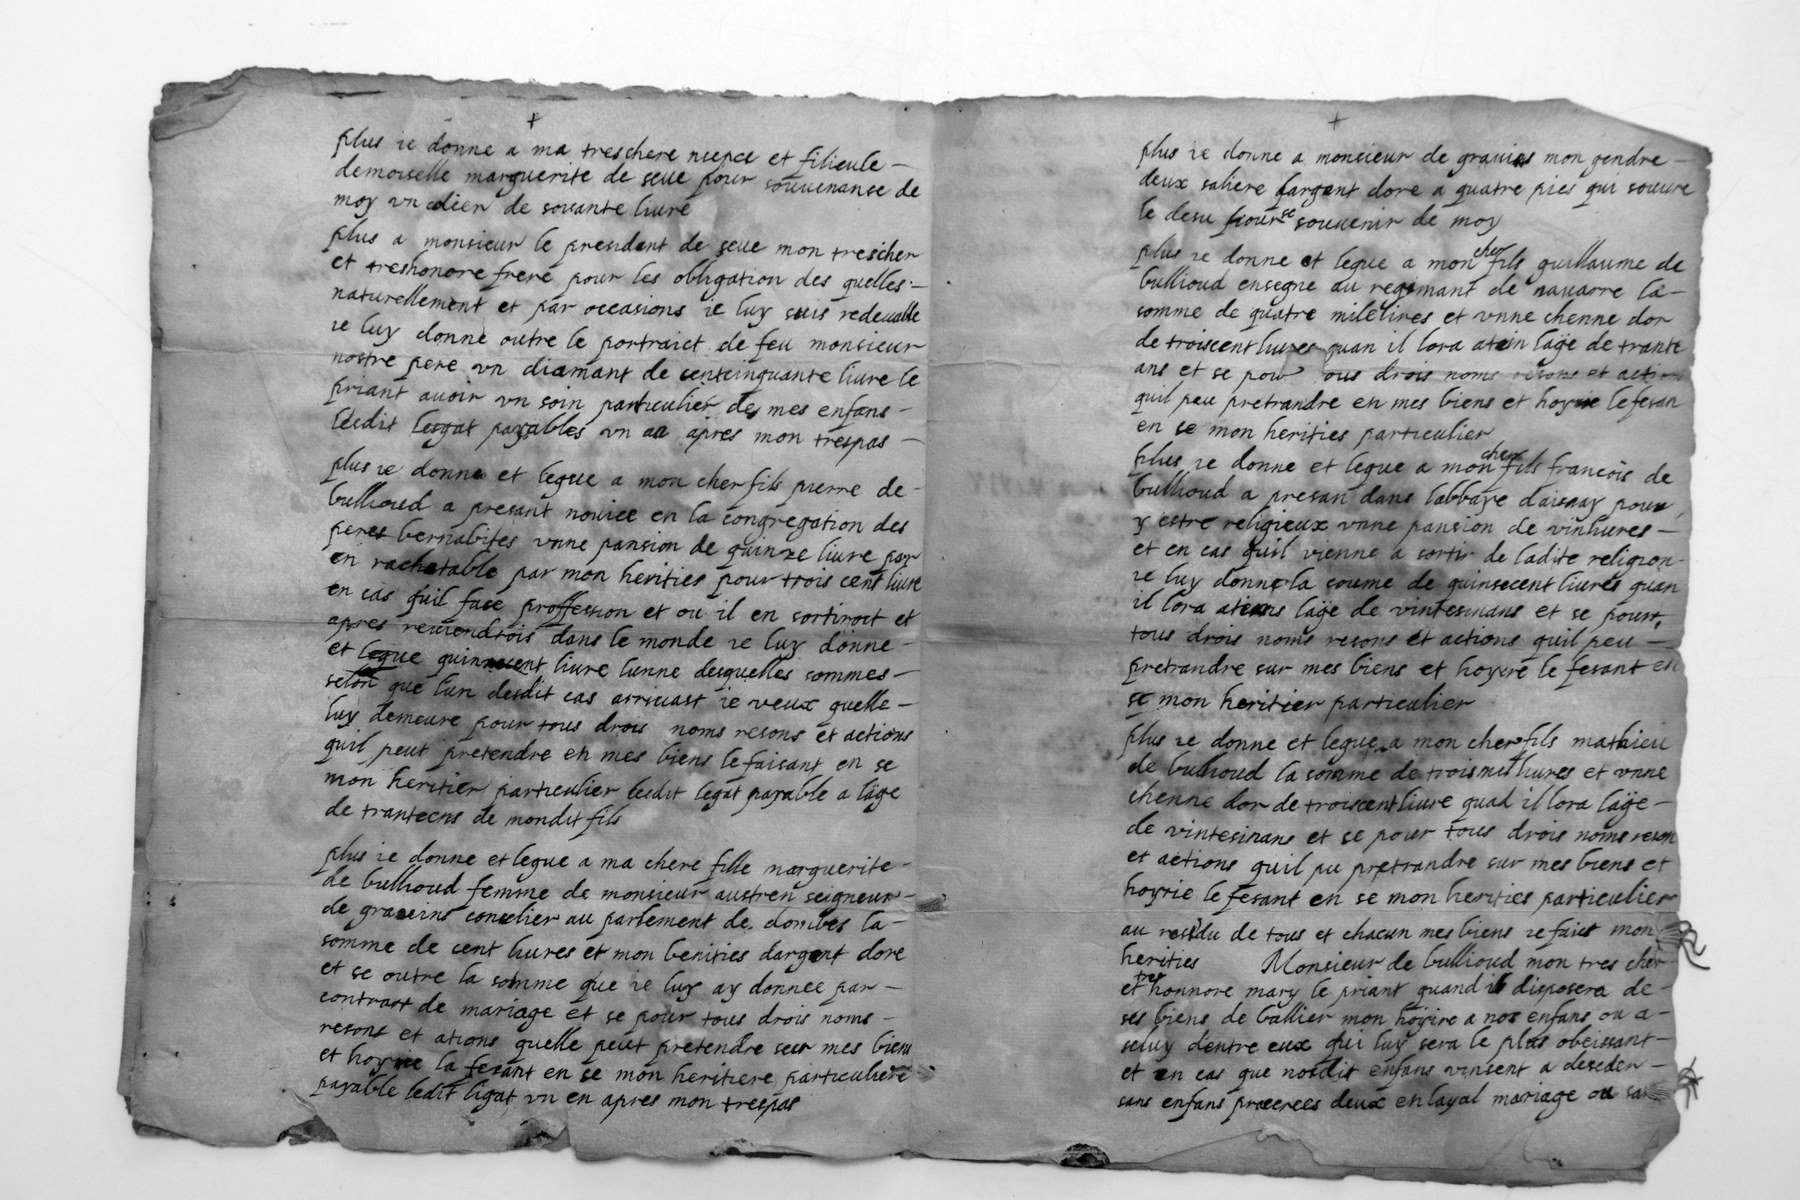 +
plus ie donne a ma treschere niepce et filieule –
demoiselle marguerite de seue pour souuenanse de
moy vn dier de soisante liure
plus a monsieur le president de seue mon trescher
et treshonore frere pour les obligation des quelles –
naturellement et par occasions ie luy suis redeuable
ie luy donne outre le portraict de feu monsieur
nostre pere vn diamant de centcinquante liure le
priant auoir vn soin particulier de mes enfans –
lesdit legat payables vn an apres mon trespas –
plus ie donne et legue a mon cher fils pierre de –
bullioud a presant nouice en la congregation des
peres bernabites vnne pansion de quinze liure par
en rachetable par mon herities pour trois cent liure
en cas quil fase proffession et ou il en sortiroit et
apres reuiendrois dans le monde ie luy donne –
et legue quinsecent liure lunne desquelles sommes –
selon que lun desdit cas arriuast ie veux quelle –
luy demeure pour tous drois noms resons et actions
quil peut pretendre en mes biens le faisant en se
mon heritier particulier ledit legat payable a lage
de trantecns de mondit fils
plus ie donne et legue a ma chere fille marguerite –
de bullioud femme de monsieur austren seigneur –
de graueins conselier au parlement de dombes la –
somme de cent liures et mon benities dargent dore
et se outre la somme que ie luy ay donnee par –
contract de mariage et se pour tous drois noms –
resons et ations quelle peut pretendre sur mes biens
et hoyrie la fesant en se mon heritiere particuliere
payable ledit ligat vn en apres mon trespas
+
plus ie donne a monsieur de grauins mon gendre –
deux saliere dargent dore a quatre pies qui souure
le desu pour se souuenir de moy
plus ie donne et legue a mon cher fils guillaume de
bullioud ensegne au regimant de nauarre la –
somme de quatre milelires et vnne chenne dor
de troiscent liures quan il lora atain lage de trante
ans et se pour tous drois noms resons et action
quil peu pretrandre en mes biens et hoyrie le fesan
en se mon herities particulier
plus ie donne et legue a mon cher fils francois de
bullioud a presan dans labbaye daisnay pour
y estre religieux vnne pansion de vinliures –
et en cas quil vienne a sortir de ladite religion
ie luy donne la soume de quinsecent liures quan
il lora atains lage de vintesinans et se pour
tous drois noms resons et actions quil peu –
pretrandre sur mes biens et hoyre le fesant en
se mon heritier particulier
plus ie donne et legue a mon cher fils mathieu
de bullioud la somme de troismis liures et vnne
chenne dor de troiscent liure quad il lora lage –
de vintesinans et se pour tous drois noms reson
et actions quil pu pretrandre sur mes biens et
hoyrie le fesant en se mon herities particulier
au residu de tous et chacun mes biens ie faict mon
herities Monsieur de bullioud mon tres cher
et tres honnore mary le priant quand il disposera de –
ses biens de ballier mon hoyire a nos enfans ou a –
seluy dentre eux qui luy sera le plus obeissant –
et en cas que nosdit enfans vinsent a deseder –
sans enfans procrees deux en layal mariage ou